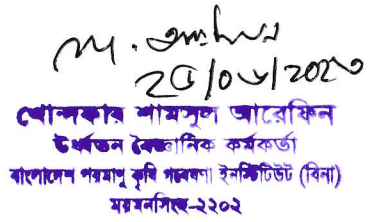 খোন্দকার শামসুল আরেফিন
উর্ধ্বতন বৈজ্ঞানিক কর্মকর্তা
বাংলাদেশ পরমাণু কৃষি গবেষণা ইনস্টিটিউট (বিনা)
ময়মনসিংহ-২২০২